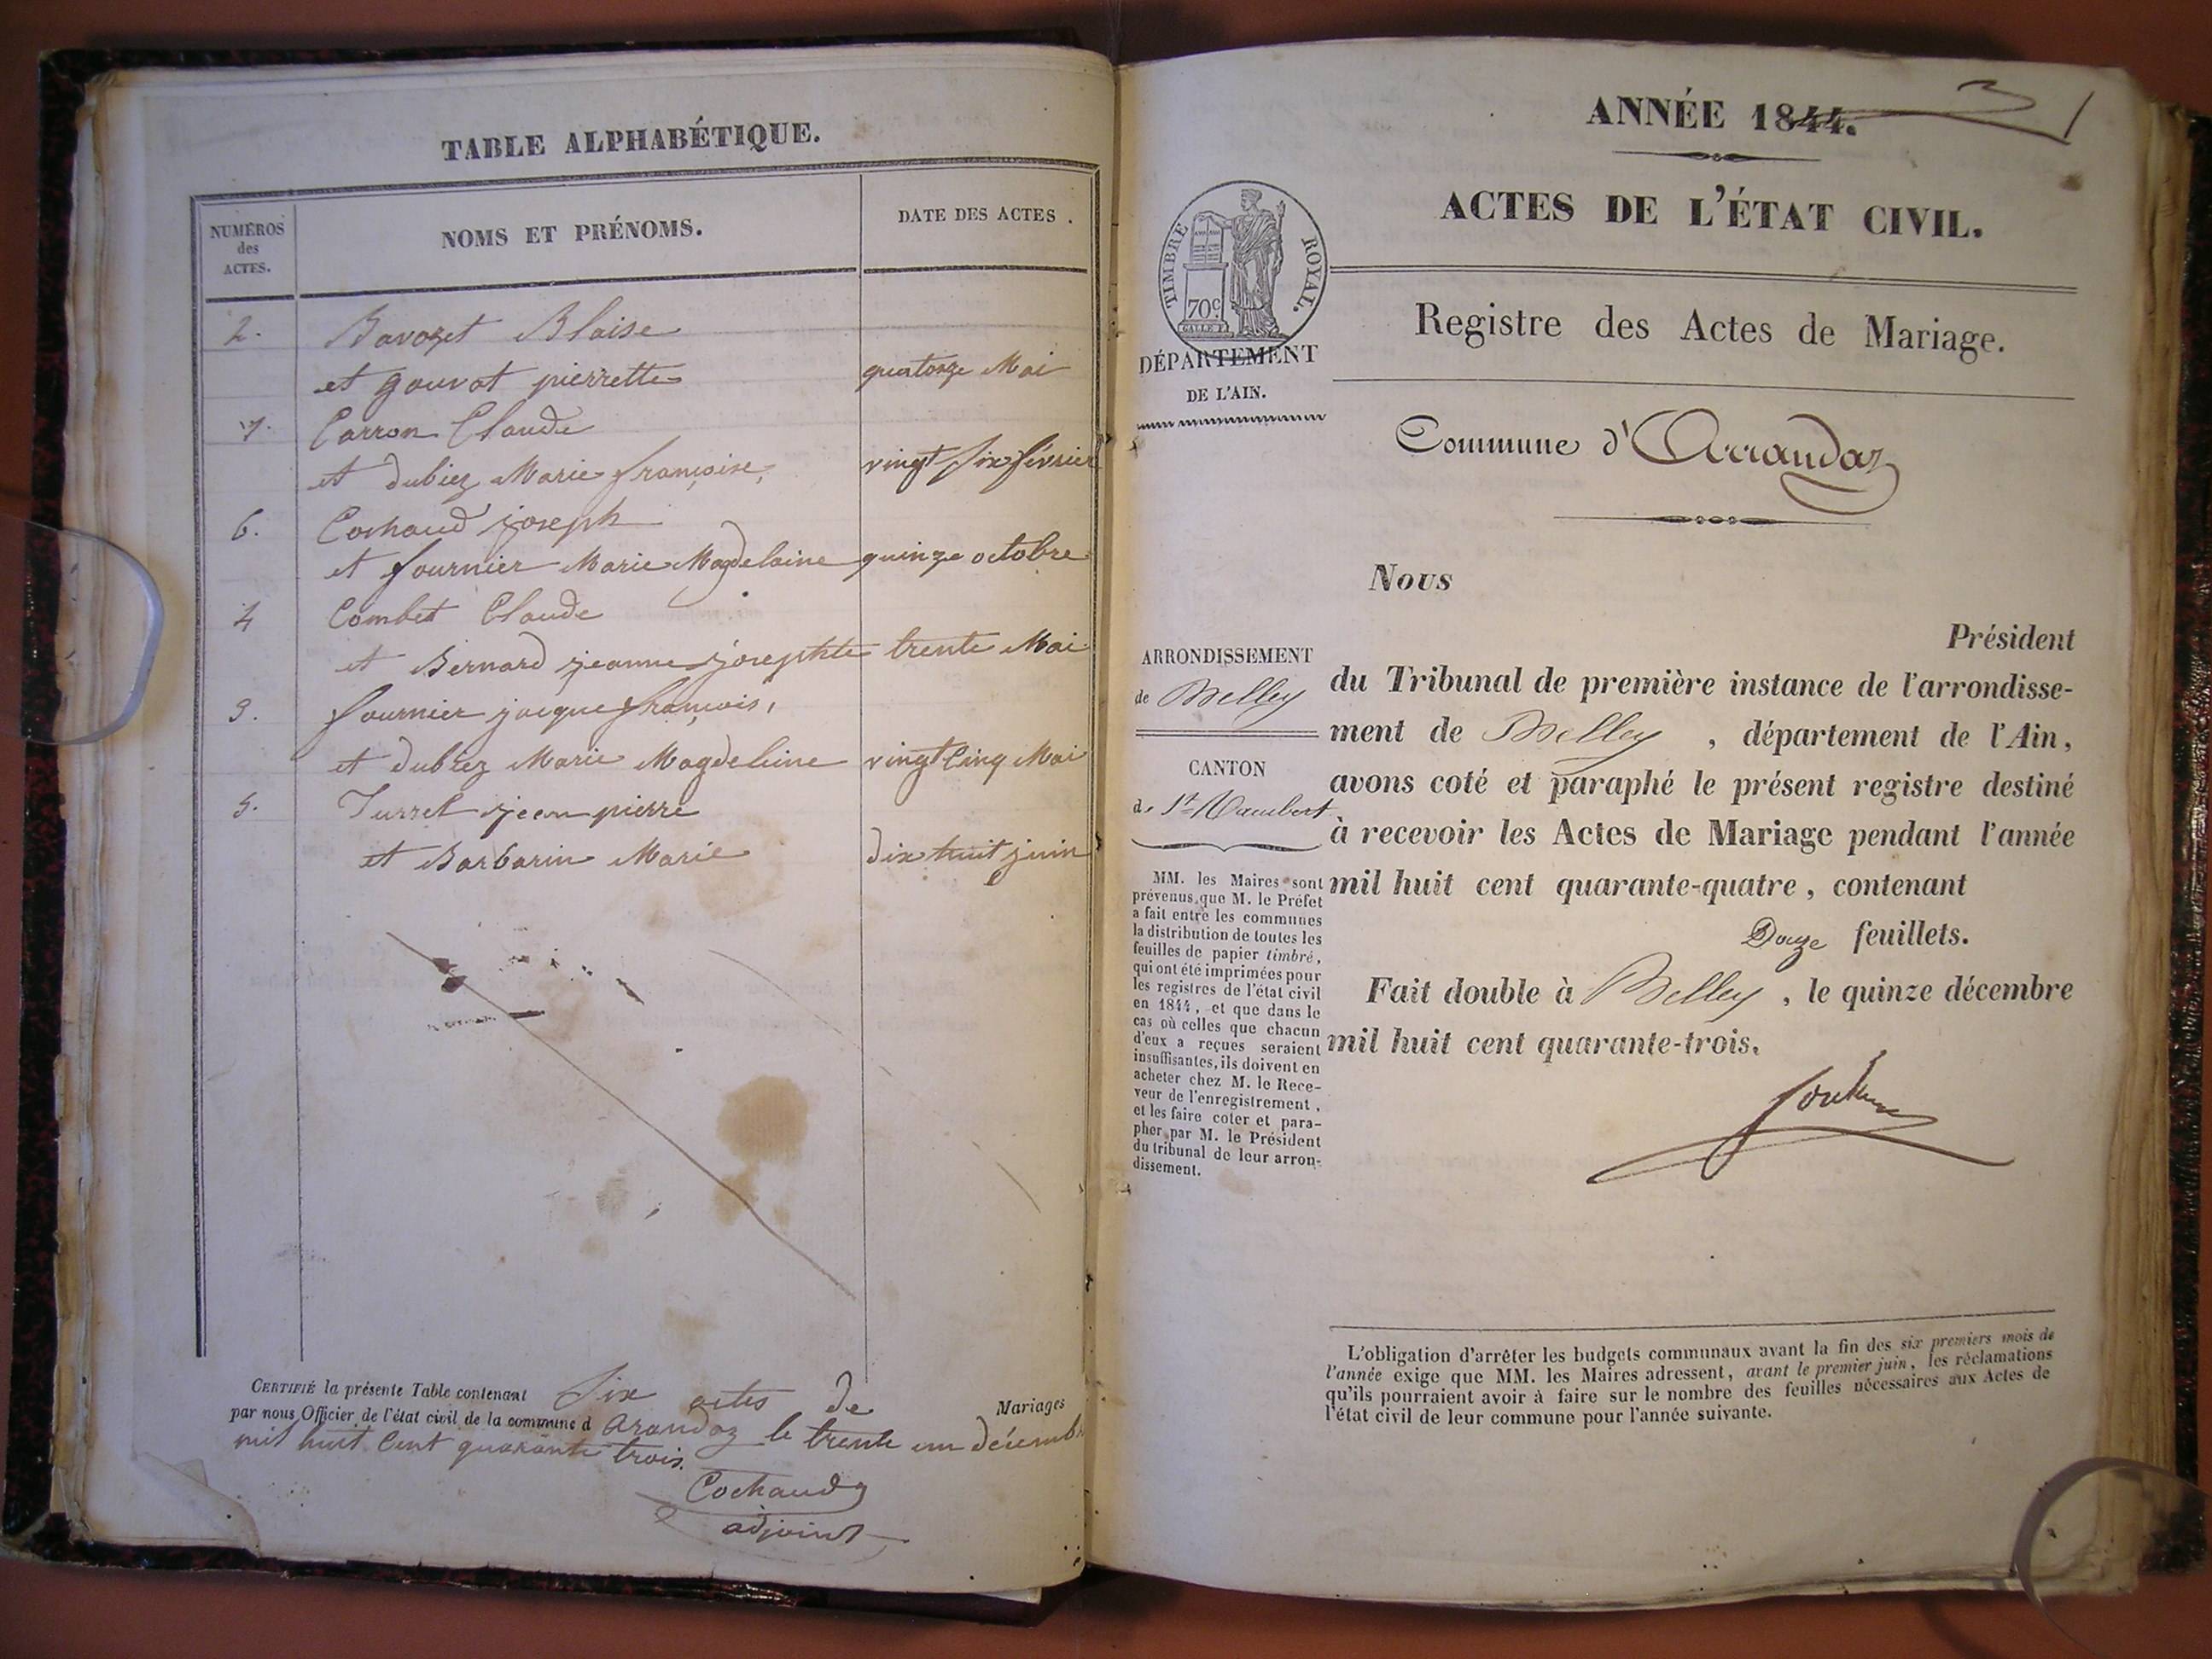 TABLE ALPHABÉTIQUE.
NUMÉROS
des
ACTES.
NOMS ET PRÉNOMS.
DATE DES ACTES.
2. Bavozet Blaise
et gouvot pierrette quatorze Mai
1. Carron Claude
et dubiez Marie françoise, vingt six février
6. Cochaud joseph
et fournier Marie Magdelaine quinze octobre
4 Combet Claude
et Bernard jeanne josephte trente Mai
3. fournier jacque françois,
et dubiez Marie Magdeleine vingt Cinq Mai
5. Turrel jean pierre
et Barbarin Marie dix huit juin
CERTIFIÉ la présente Table contenant Six actes de Mariages
par nous Officier de l'état civil de la commune d Arandaz le trente un décemb
mil huit Cent quarante trois.
Cochaud
adjoint
ANNÉE 1844.
ACTES DE L'ÉTAT CIVIL.
TIMBRE ROYAL.
70c
Registre des Actes de Mariage.
DÉPARTEMENT
DE L'AIN.
Commune d'Arrandaz
Nous
Président
ARRONDISSEMENT
de Belley
CANTON
de St Rambert
du Tribunal de première instance de l'arrondisse-
ment de Belley, département de l'Ain,
avons coté et paraphé le présent registre destiné
à recevoir les Actes de Mariage pendant l'année
mil huit cent quarante-quatre, contenant
Douze feuillets.
Fait double à Belley, le quinze décembre
mil huit cent quarante-trois.
MM. les Maires sont
prévenus que M. le Préfet
a fait entre les communes
la distribution de toutes les
feuilles de papier timbré,
qui ont été imprimées pour
les registres de l'état civil
en 1844, et que dans le
cas où celles que chacun
d'eux a reçues seraient
insuffisantes, ils doivent en
acheter chez M. le Rece-
veur de l'enregistrement,
et les faire coter et para-
pher par M. le Président
du tribunal de leur arron-
dissement.
L'obligation d'arrêter les budgets communaux avant la fin des six premiers mois de
l'année exige que MM. les Maires adressent, avant le premier juin, les réclamations
qu'ils pourraient avoir à faire sur le nombre des feuilles nécessaires aux Actes de
l'état civil de leur commune pour l'année suivante.